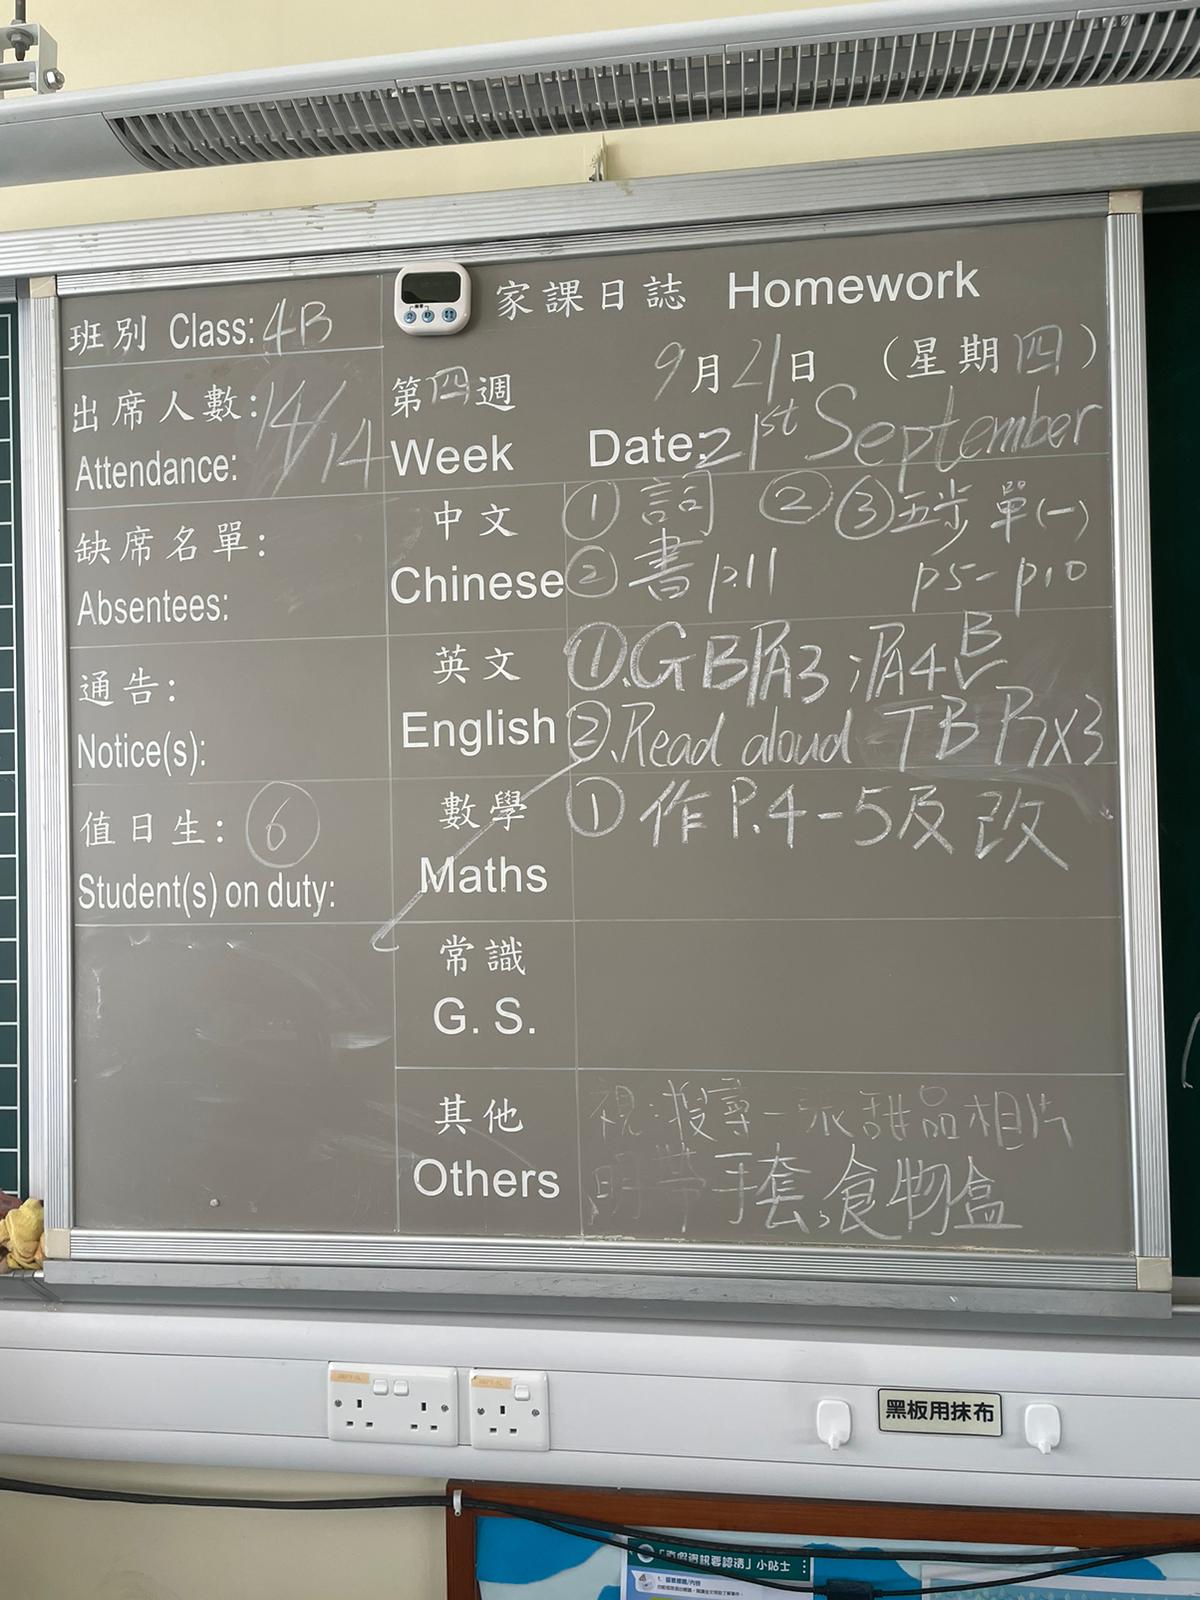 家課日誌 Homework
班別 Class: 4B
出席人數: 14/14
Attendance:
缺席名單:
Absentees:
通告:
Notice(s):
值日生: ⑥
Student(s) on duty:
第四週 9月21日 (星期四)
Week Date: 21st September
中文 ① 詞② ③ 五步單(一)
Chinese ② 書 p.11 p5-p10
英文 ①. GB PA3; PA4 B
English ②. Read aloud TB P7x3
數學 ① 作 P.4-5及改
Maths
常識
G. S.
其他 視:搜尋一張甜品相片
Others 明帶手套,食物盒
黑板用抹布
小貼士